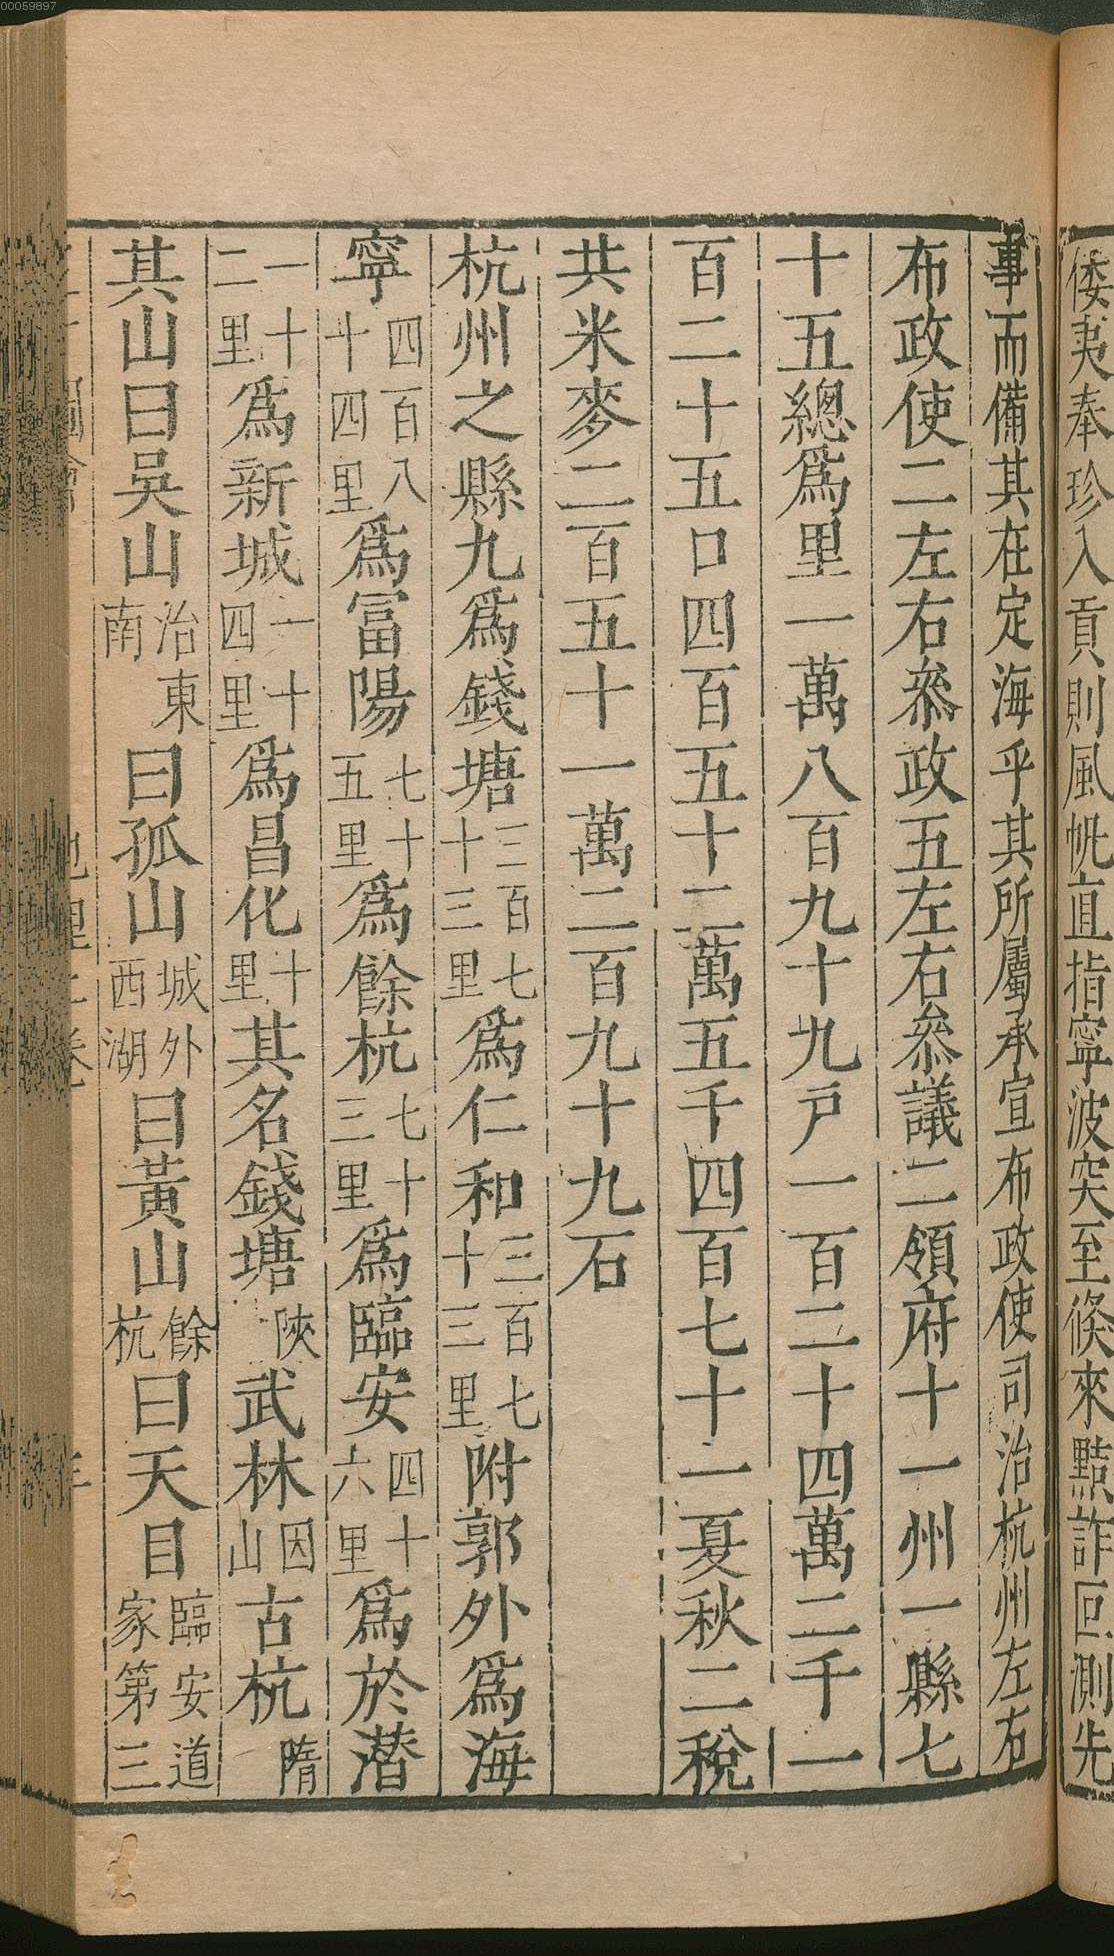 00059897
倭夷奉珍入貢則風帆直指寧波突至倏來黠詐叵測先
事而備其在定海乎其所屬承宣布政使司治杭州左右
布政使二左右叅政五左右叅議二領府十一州一縣七
十五總爲里一萬八百九十九戸一百二十四萬二千一
百二十五口四百五十二萬五千四百七十一夏秋二稅
共米麥二百五十一萬二百九十九石
杭州之縣九爲錢塘三百七十三里爲仁和三百七十三里附郭外爲海
寧四百八十四里爲冨陽七十五里爲餘杭七十三里爲臨安四十六里爲於潛
一十二里爲新城一十四里爲昌化十里其名錢塘陜武林因山古杭隋
其山曰吳山治東南曰孤山城外西湖曰黃山餘杭曰天目臨安道家第三